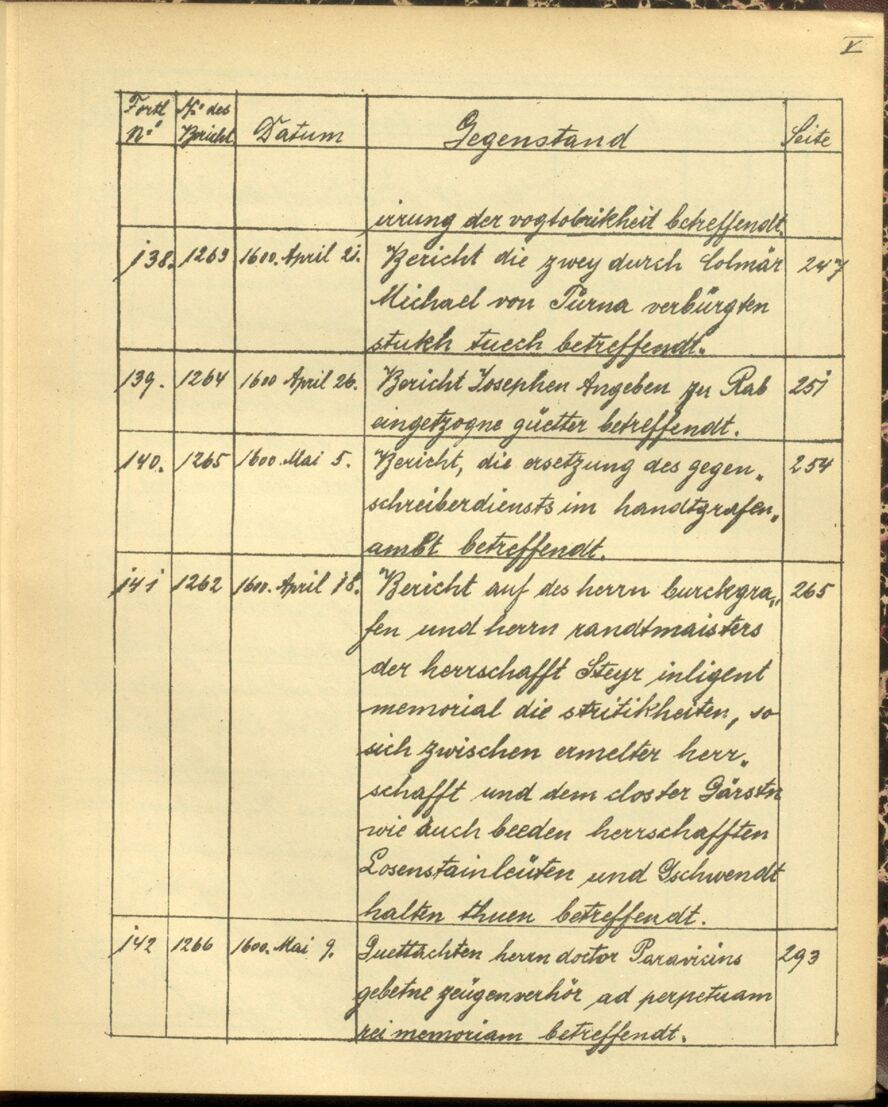 V
Fortl Nº No des Bericht Datum Gegenstand Seite
irrung der vogtobrikheit betreffendt.
138. 1263 1600. April 21. Bericht die zwey durch Colmär 247
Michael von Pürna verbürgten
stukh tuech betreffendt.
139. 1264 1600 April 26. Bericht Josephen Angeben zu Rab 251
eingetzogne güetter betreffendt.
140. 1265 1600. Mai 5. Bericht, die ersetzung des gegen„ 254
schreiberdiensts im handtgrafen„
ambt betreffendt.
141 1262 1600. April 18. Bericht auf des herrn burckgra„ 265
fen und herrn randtmaisters
der herrschafft Steyr inligent
memorial die stritikheiten, so
sich zwischen ermelter herr„
schafft und dem closter Gärstn
wie auch beeden herrschafften
Losenstainleüten und Gschwendt
halten thuen betreffendt.
142 1266 1600. Mai 9. Guettachten herrn doctor Paravicins 293
gebetne zeügenverhör ad perpetuam
rei memoriam betreffendt.